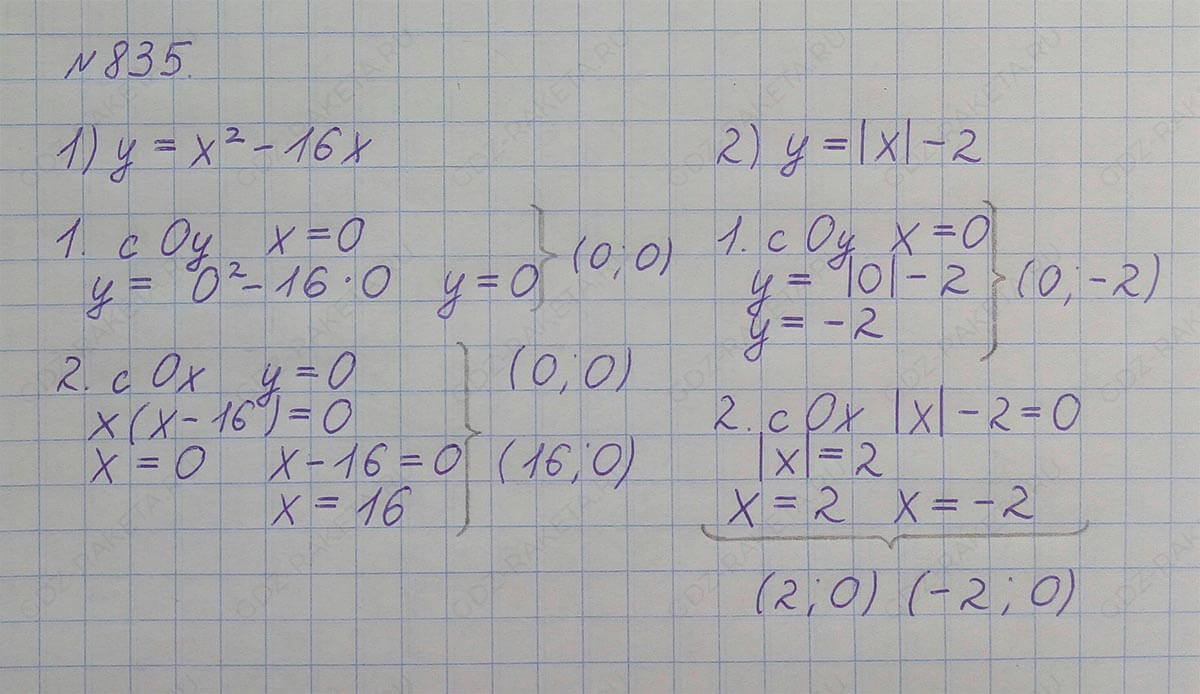 №835.
1) y = x² - 16x
1. с Oy x = 0
y = 0² - 16 · 0 y = 0 (0; 0)
2. с Ox y = 0 (0; 0)
x(x - 16) = 0
x = 0 x - 16 = 0 (16; 0)
x = 16
2) y = |x| - 2
1. с Oy x = 0
y = |0| - 2 (0; -2)
y = -2
2. с Ox |x| - 2 = 0
|x| = 2
x = 2 x = -2
(2; 0) (-2; 0)
GDZ-RAKETA.RU